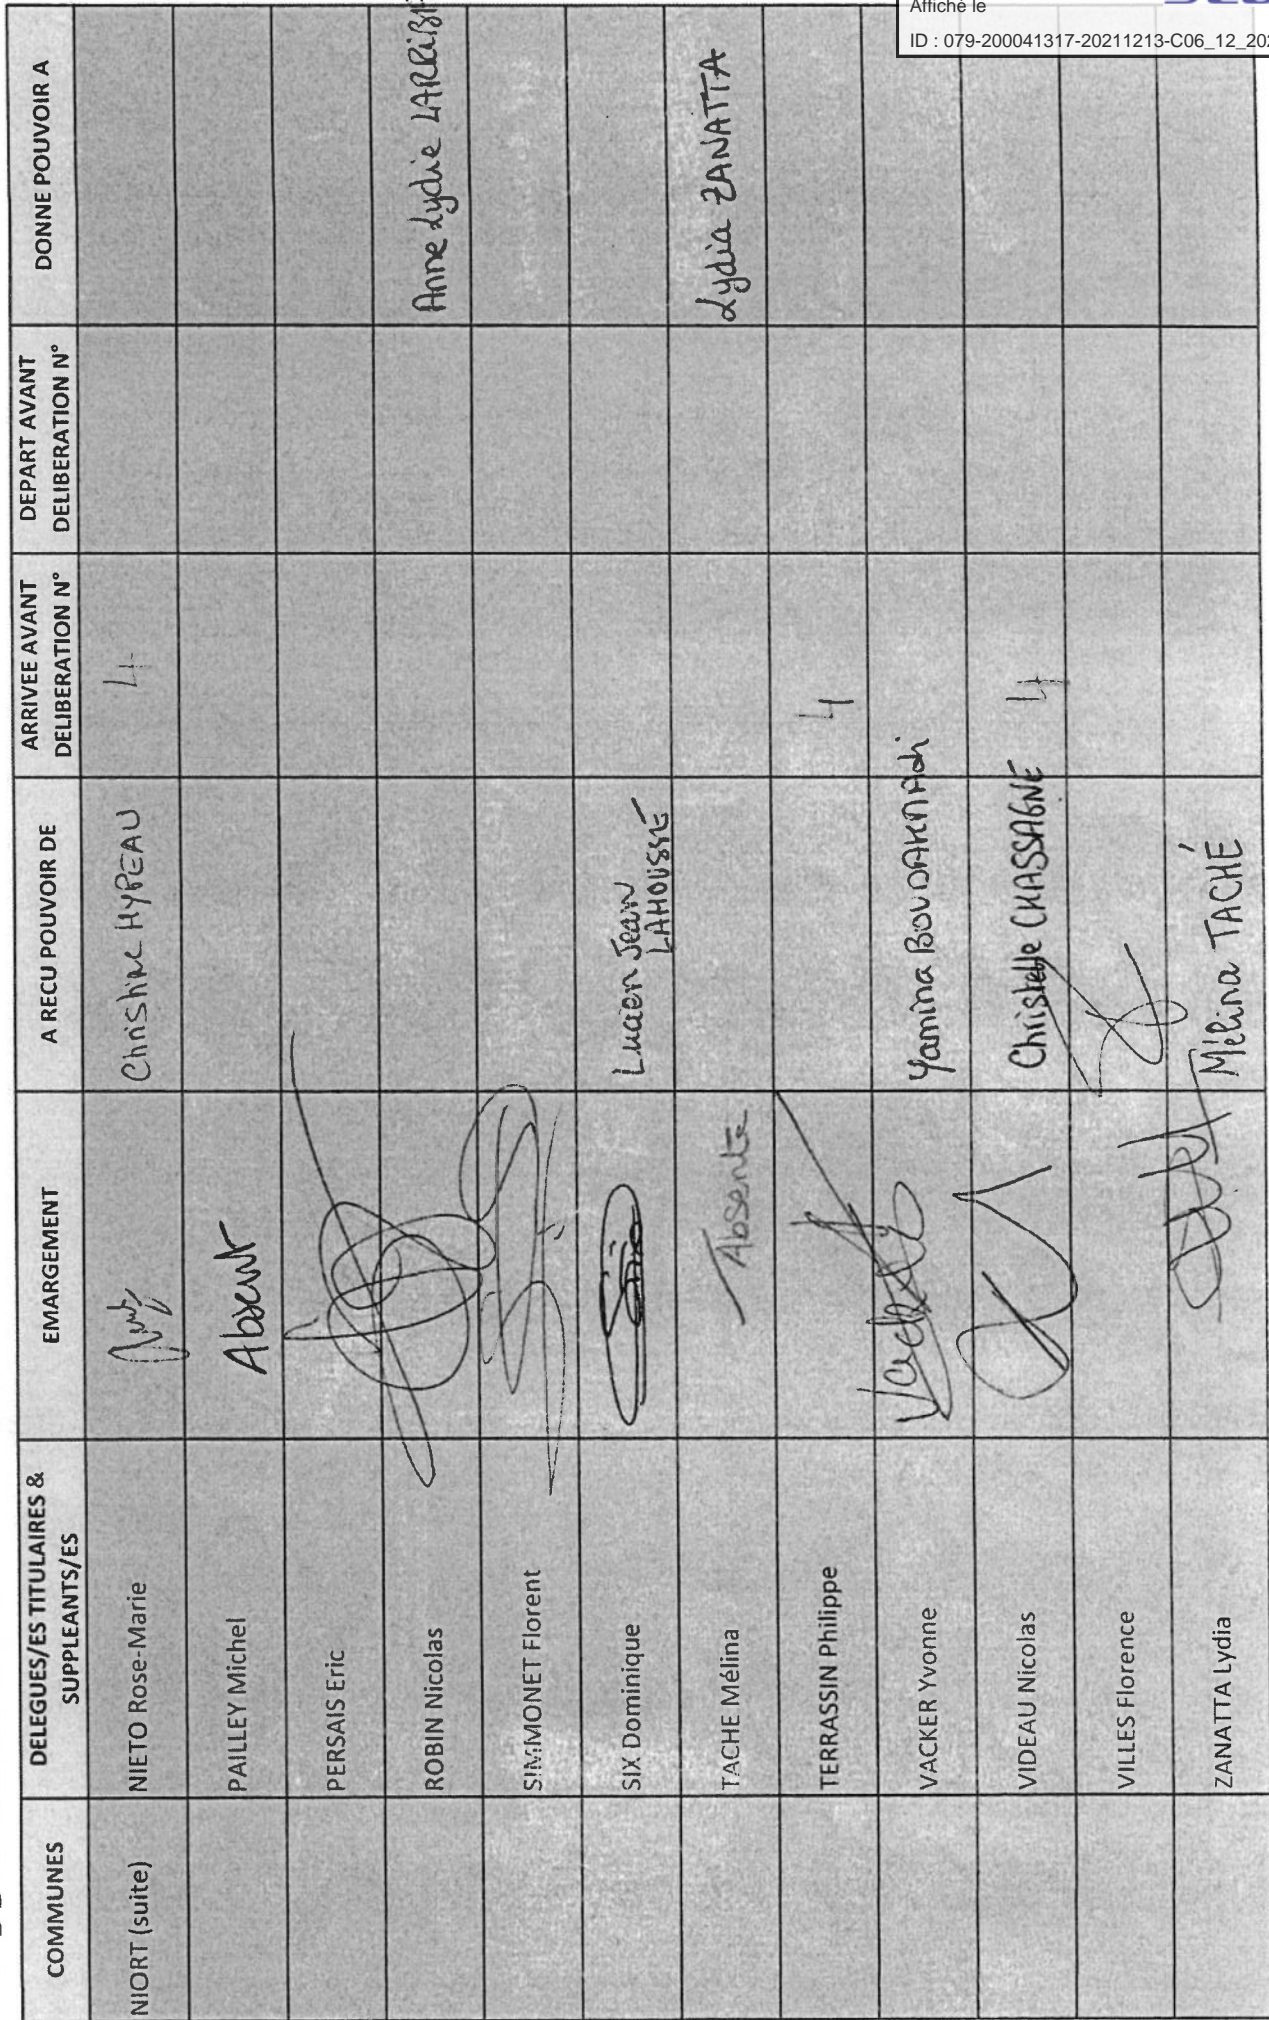 Affiché le
ID : 079-200041317-20211213-C06_12_202
COMMUNES
DELEGUES/ES TITULAIRES &
SUPPLEANTS/ES
EMARGEMENT
A RECU POUVOIR DE
ARRIVEE AVANT
DELIBERATION N°
DEPART AVANT
DELIBERATION N°
DONNE POUVOIR A
NIORT (suite)
NIETO Rose-Marie
Christine HYPEAU
4
PAILLEY Michel
Absent
PERSAIS Eric
ROBIN Nicolas
Anne Lydie
SIMMONET Florent
SIX Dominique
Lucien Jean
LAHOUSSE
TACHE Mélina
Absente
Lydia ZANATTA
TERRASSIN Philippe
4
VACKER Yvonne
Yamina
VIDEAU Nicolas
Christelle CHASSAGNE
4
VILLES Florence
ZANATTA Lydia
Mélina TACHÉ